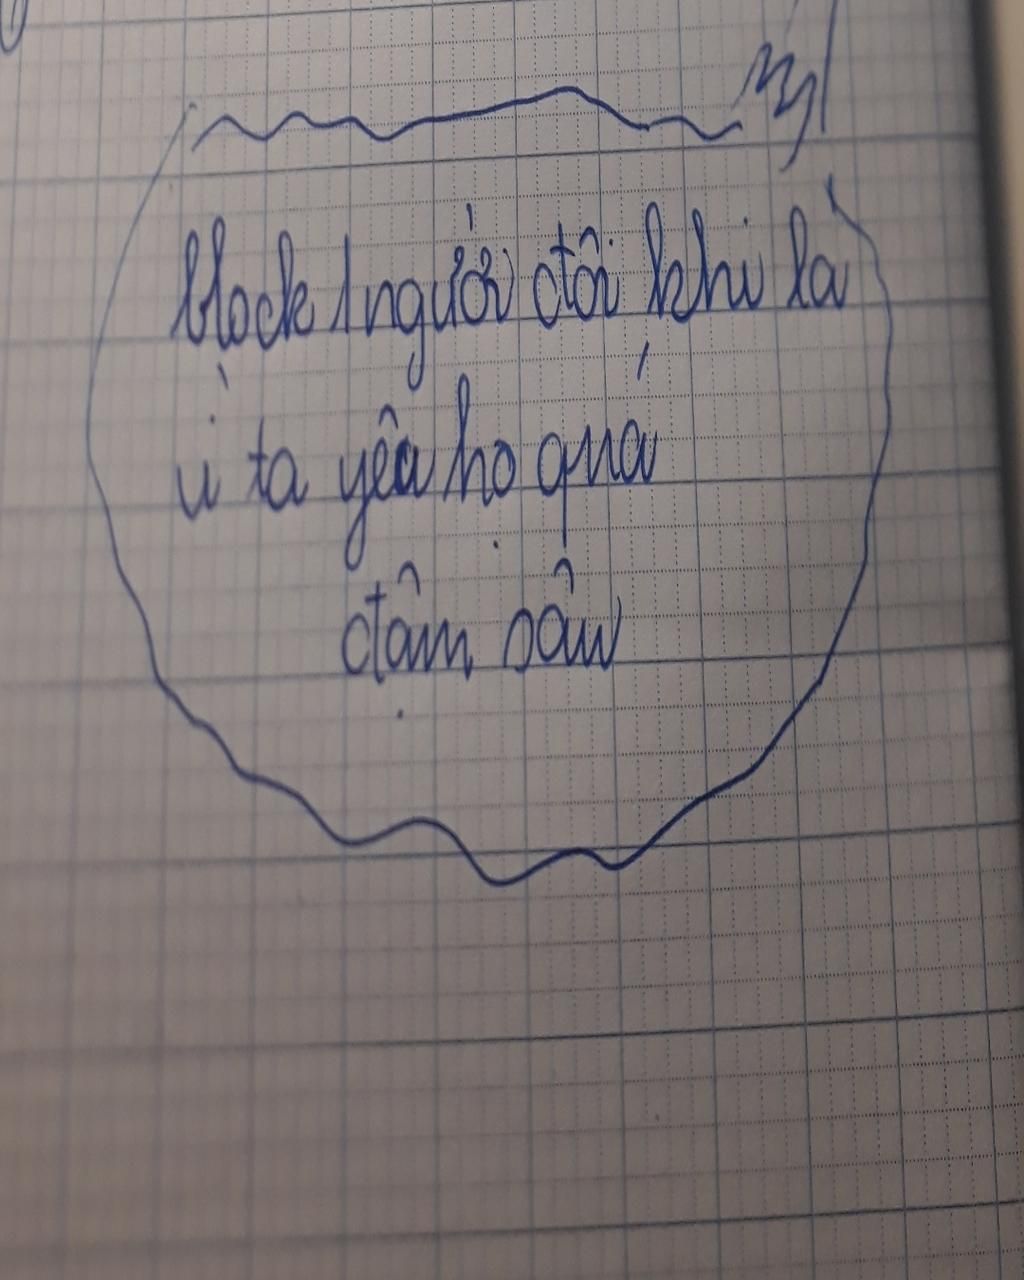 block 1 người đôi khi là
vì ta yêu họ quá
đậm sâu